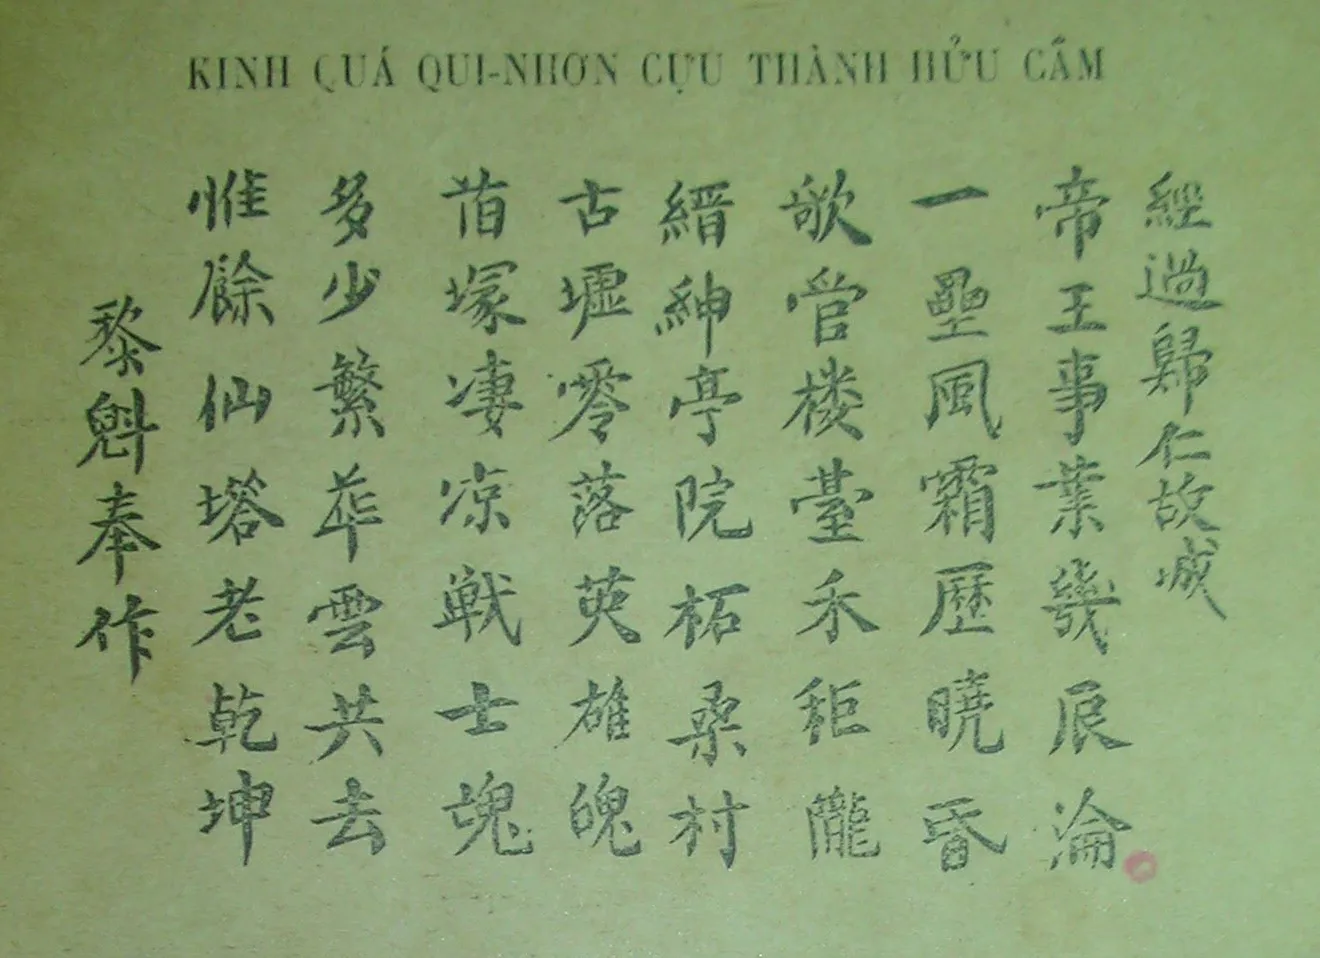 KINH QUÁ QUI-NHƠN CỰU THÀNH HỬU CẢM
經過歸仁故城
帝王事業幾辰淪
一壘風霜歴暁昏
歌管楼臺禾秬隴
縉紳亭院柘桑村
古墟零落英雄魄
塚凄凉戦士魂
多少繁華雲共去
惟餘仙塔老乾坤
黎魁奉作